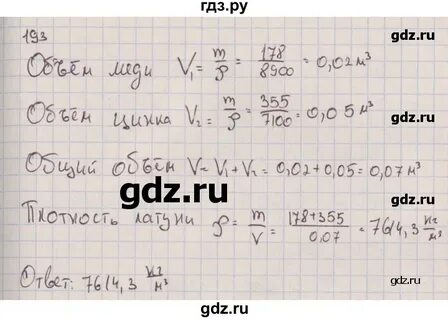 гдз.ру
193
gdz.ru
Объём меди V₁ = m/ρ = 178/8900 = 0,02 м³
gdz.ru
Объём цинка V₂ = m/ρ = 355/7100 = 0,05 м³
Общий объём V = V₁ + V₂ = 0,02 + 0,05 = 0,07 м³
gdz.ru
gdz.ru
Плотность латуни ρ = m/V = 178+355/0,07 = 7614,3 кг/м³
Ответ: 7614,3 кг/м³
gdz.ru
gdz.ru
гдз.ру